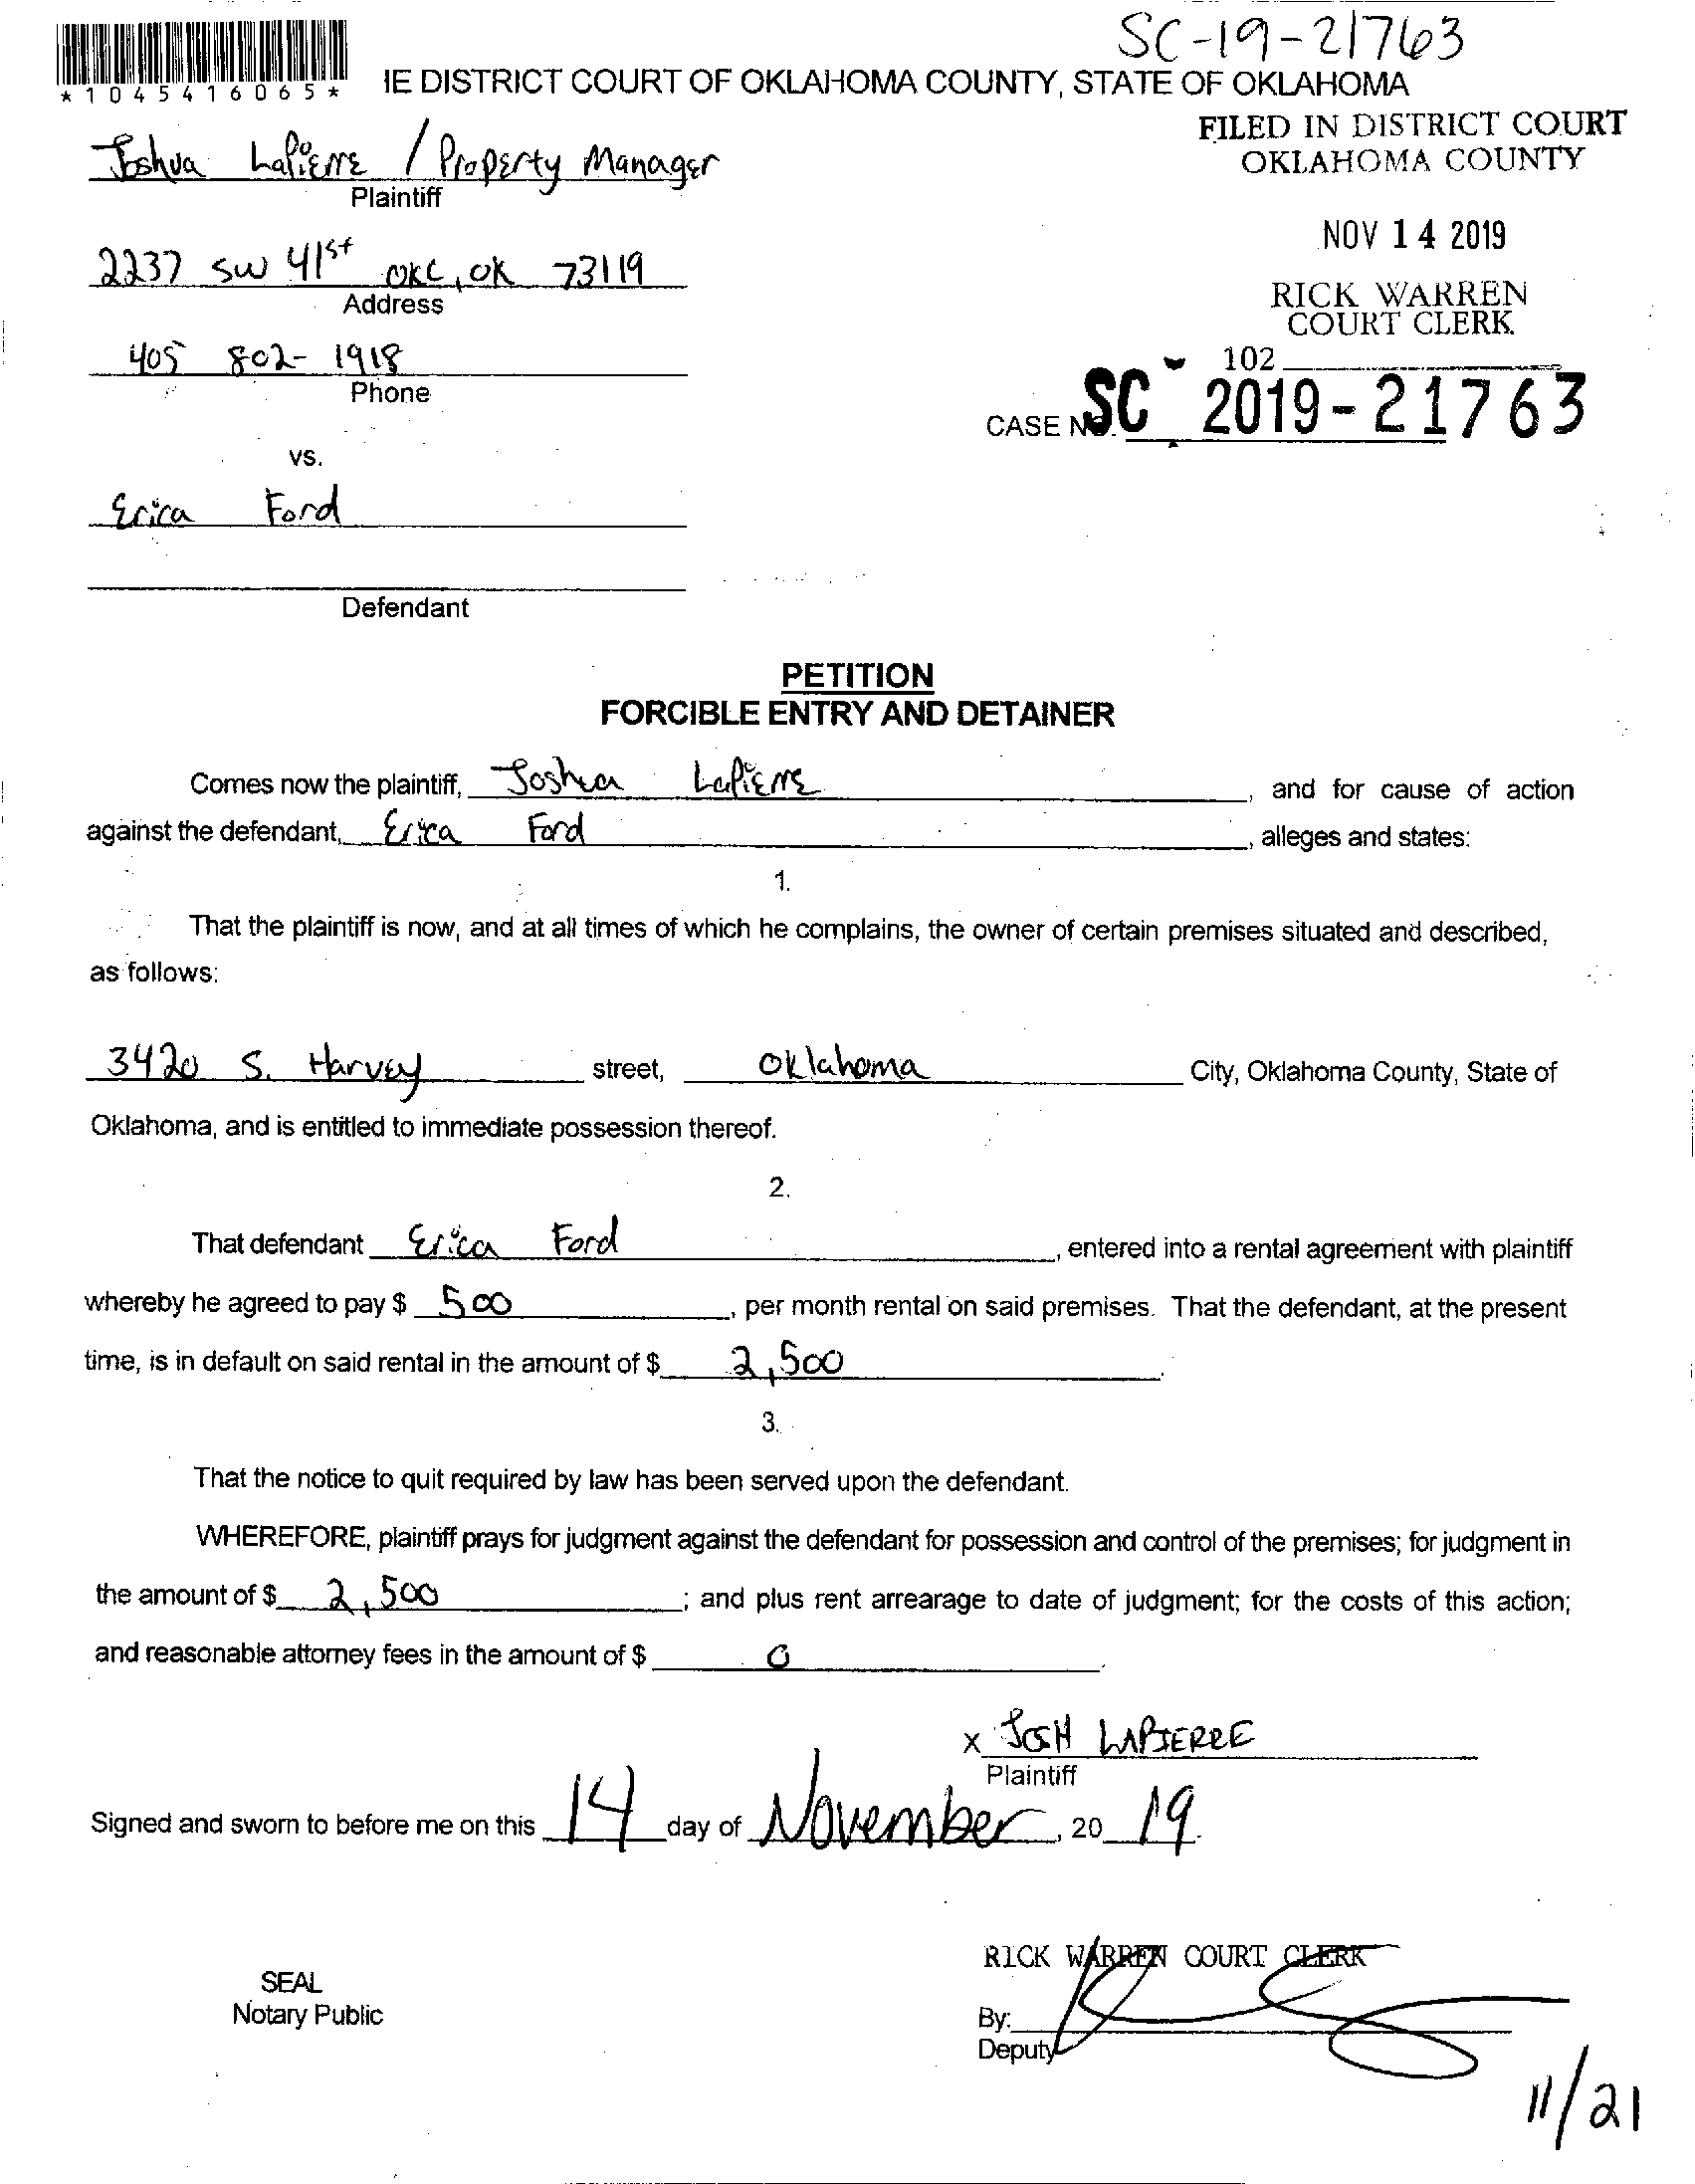 SC-19-21763
*1045416065*
IE DISTRICT COURT OF OKLAHOMA COUNTY, STATE OF OKLAHOMA
FILED IN DISTRICT COURT
OKLAHOMA COUNTY
Joshua LaPierre / Property Manager
Plaintiff
NOV 14 2019
2237 SW 41st OKC, OK 73119
Address
RICK WARREN
COURT CLERK
405 802-1918
Phone
102
CASE NO. SC 2019-21763
vs.
Erica Ford
Defendant
PETITION
FORCIBLE ENTRY AND DETAINER
Comes now the plaintiff, Joshua LaPierre, and for cause of action
against the defendant, Erica Ford, alleges and states:
1.
That the plaintiff is now, and at all times of which he complains, the owner of certain premises situated and described,
as follows:
3420 S. Harvey street, Oklahoma City, Oklahoma County, State of
Oklahoma, and is entitled to immediate possession thereof.
2.
That defendant Erica Ford, entered into a rental agreement with plaintiff
whereby he agreed to pay $ 500, per month rental on said premises. That the defendant, at the present
time, is in default on said rental in the amount of $ 2,500.
3.
That the notice to quit required by law has been served upon the defendant.
WHEREFORE, plaintiff prays for judgment against the defendant for possession and control of the premises; for judgment in
the amount of $ 2,500; and plus rent arrearage to date of judgment; for the costs of this action;
and reasonable attorney fees in the amount of $ 0.
x JOSH LAPIERRE
Plaintiff
Signed and sworn to before me on this 14 day of November, 20 19.
RICK WARREN COURT CLERK
SEAL
Notary Public
By:
Deputy
11/21